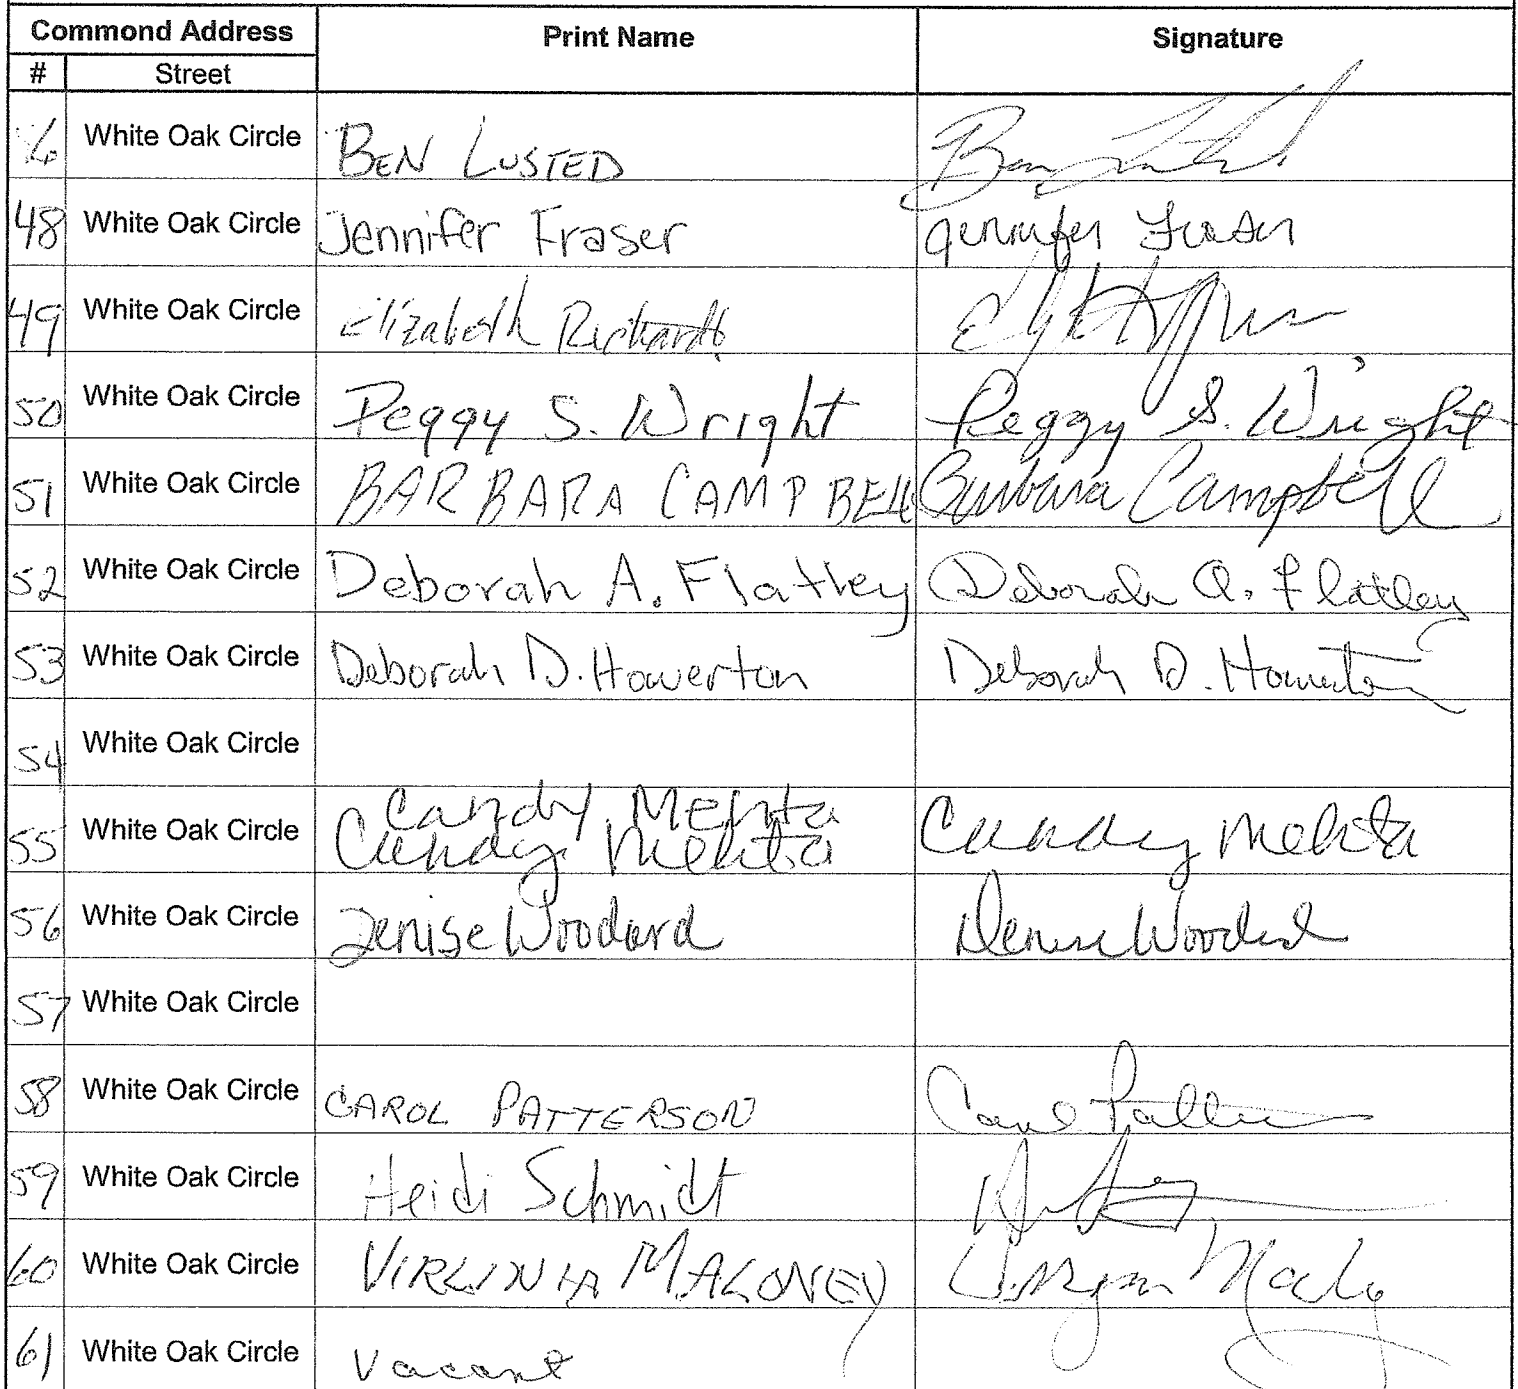 Commond Address Print Name Signature
# Street
6 White Oak Circle BEN LUSTED
48 White Oak Circle Jennifer Fraser Jennifer Fraser
49 White Oak Circle Elizabeth
50 White Oak Circle Peggy S. Wright Peggy S. Wright
51 White Oak Circle BARBARA CAMPBELL Barbara Campbell
52 White Oak Circle Deborah A. Flatley Deborah A. Flatley
53 White Oak Circle Deborah D. Howerton Deborah D. Howerton
54 White Oak Circle
Candy Mehta
55 White Oak Circle Candy Mehta Candy Mehta
56 White Oak Circle Denise Woodard Denise Woodard
57 White Oak Circle
58 White Oak Circle CAROL PATTERSON Carol
59 White Oak Circle Heidi Schmidt
60 White Oak Circle VIRGINIA MALONEY
61 White Oak Circle Vacant